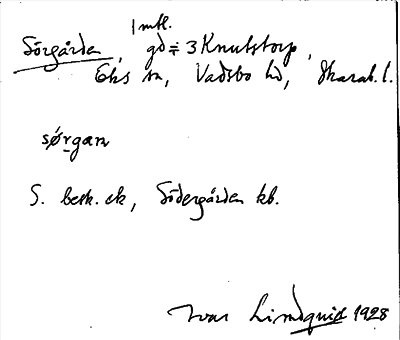 1 mtl.
Sörgården, gd ≡ 3 Knutstorp,
Eks sn, Vadsbo hd, Skarab. l.
sø̀rgaɳ
S. besk. ek, Södergården kb.
Ivar Lindquist 1928